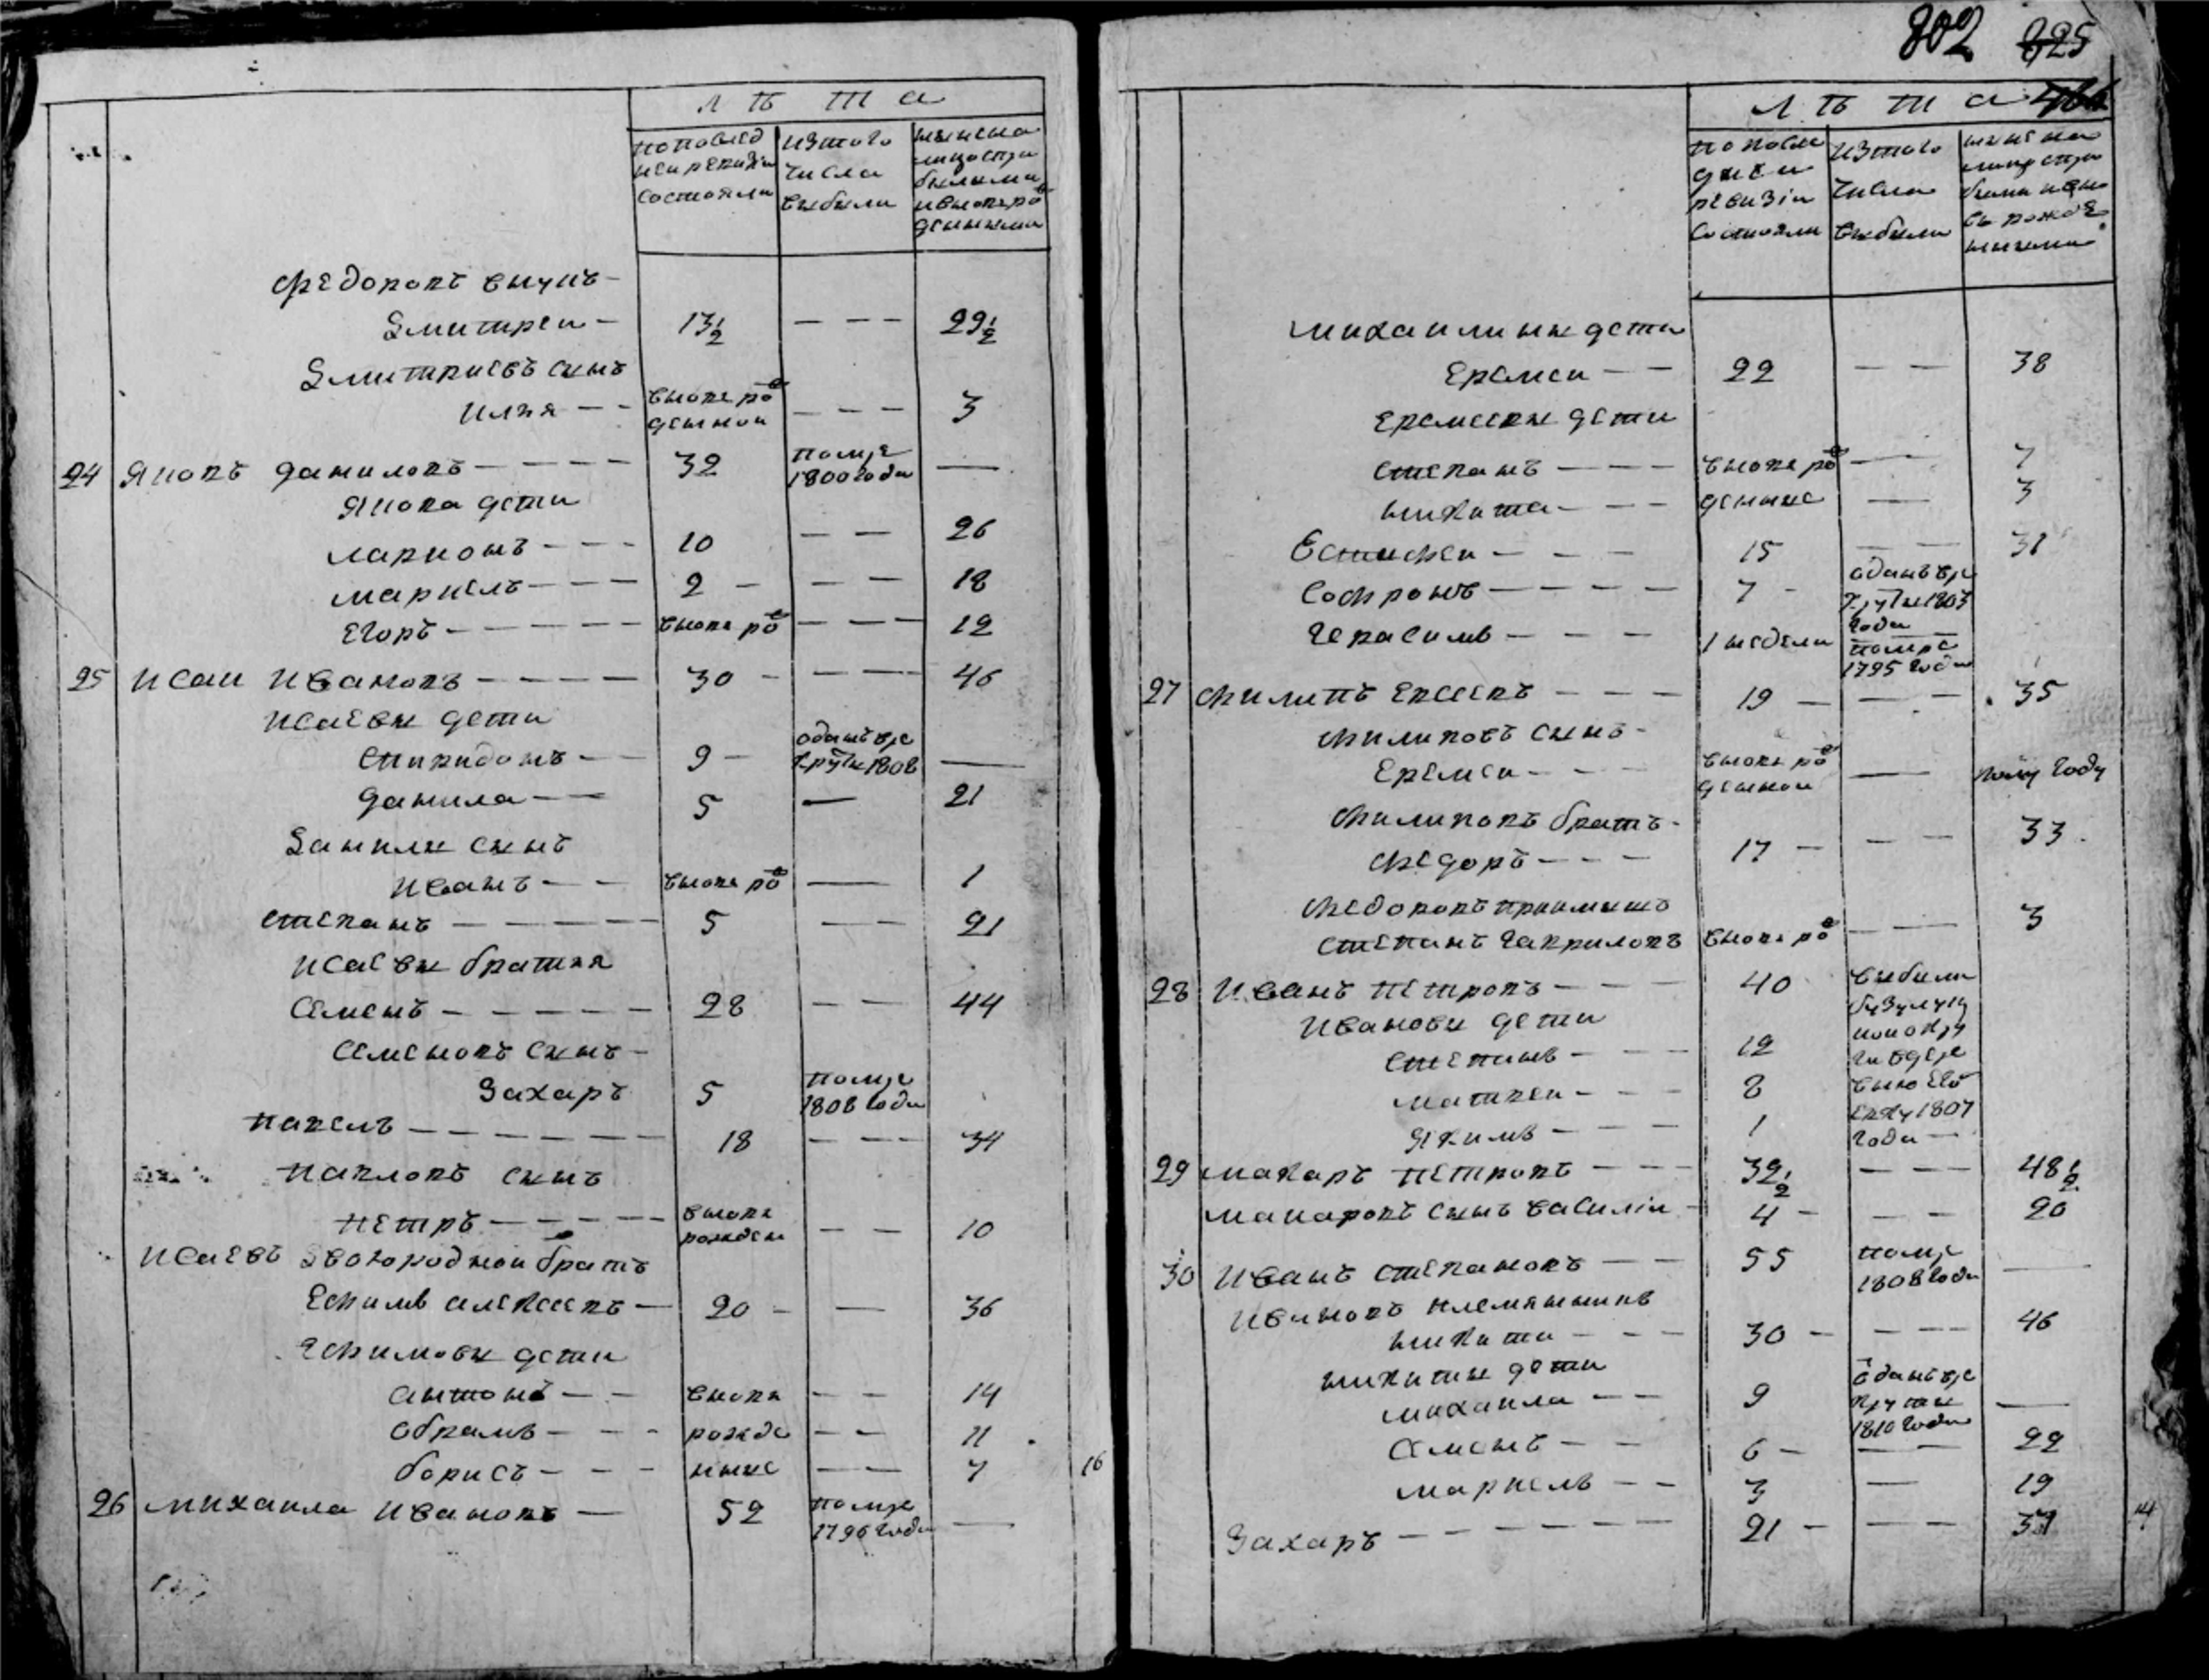 лѣта
попослѣд
ней ревизіи
состояли
изтого
числа
выбыли
ныне на
лицо спри
былыми
и вновь ро
жденными
Федоровъ внукъ
Дмитреи 13½ — — — 29½
Дмитриевъ сынъ
Илья — — вновь ро жденной — — — 3
24 Яковъ Даниловъ — — — — 32 помре 1800 года —
Якова дети
Ларионъ — — — 10 — — 26
Маркелъ — — — 2 — — — 18
Егоръ — — — — вновь ро — — — 12
25 Исаи Ивановъ — — — — 30 — — — 46
Исаевы дети
Спиридонъ — — 9 — оданъ вре круты 1808 —
Данила — — 5 — 21
Данилы сынъ
Иванъ — — вновь ро — 1
Степанъ — — — — — 5 — — 21
Исаевы братья
Семенъ — — — — — 28 — — 44
Семеновъ сынъ —
Захаръ 5 помре 1808 года
Павелъ — — — — — — 18 — — — 34
Павловъ сынъ
Петръ — — — — — вновь рожден — — 10
Исаевъ двоюродной братъ
Ефимъ Алексеевъ — 20 — — 36
Ефимовы дети
Антонъ — — вновь — — 14
Обрамъ — — — рожде — — 11
Борисъ — — — нные — — 7 16
26 Михаила Ивановъ — 52 помре 1796 года —
802 825
лѣта
попосле
дней
ревизіи
состояли
изтого
числа
выбыли
ныне на
лицо спри
былыми и вно
вь рожде
нными
Михаилыны дети
Еремеи — — 22 — — 38
Еремеевы дети
Степанъ — — — вновь ро — 7
Никита — — — жденные — 3
Естифеи — — — 15 — — 31
Софронъ — — — — 7 — оданъ вре круты 1803 года
Герасимъ — — — 1 недели помре 1795 года
27 Филипъ Евсеевъ — — — 19 — — — 35
Филиповъ сынъ —
Еремеи — — — вновь ро жденной — полу году
Филиповъ братъ —
Федоръ — — — 17 — — — 33
Федоровъ приимышъ
Степанъ Гавриловъ вновь ро — — 3
28 Иванъ Петровъ — — — 40 выбыли
Ивановы дети бузулуц
Степанъ — — — 12 кой округи вдере
Матвеи — — — 8 вню его
Якимъ — — — 1 1807 года —
29 Макаръ Петровъ — — — 32½ — — — 48½
Макаровъ сынъ Василіи — 4 — — — 20
30 Иванъ Степановъ — — 55 помре 1808 года —
Ивановъ племянникъ
Никита — — — 30 — — — — 46
Никиты дети
Михаила — — 9 оданъ вре круты 1810 года —
Семенъ — — 6 — — — 22
Маркелъ — — 3 — 19
Захаръ — — — — — — 21 — — — 37 14